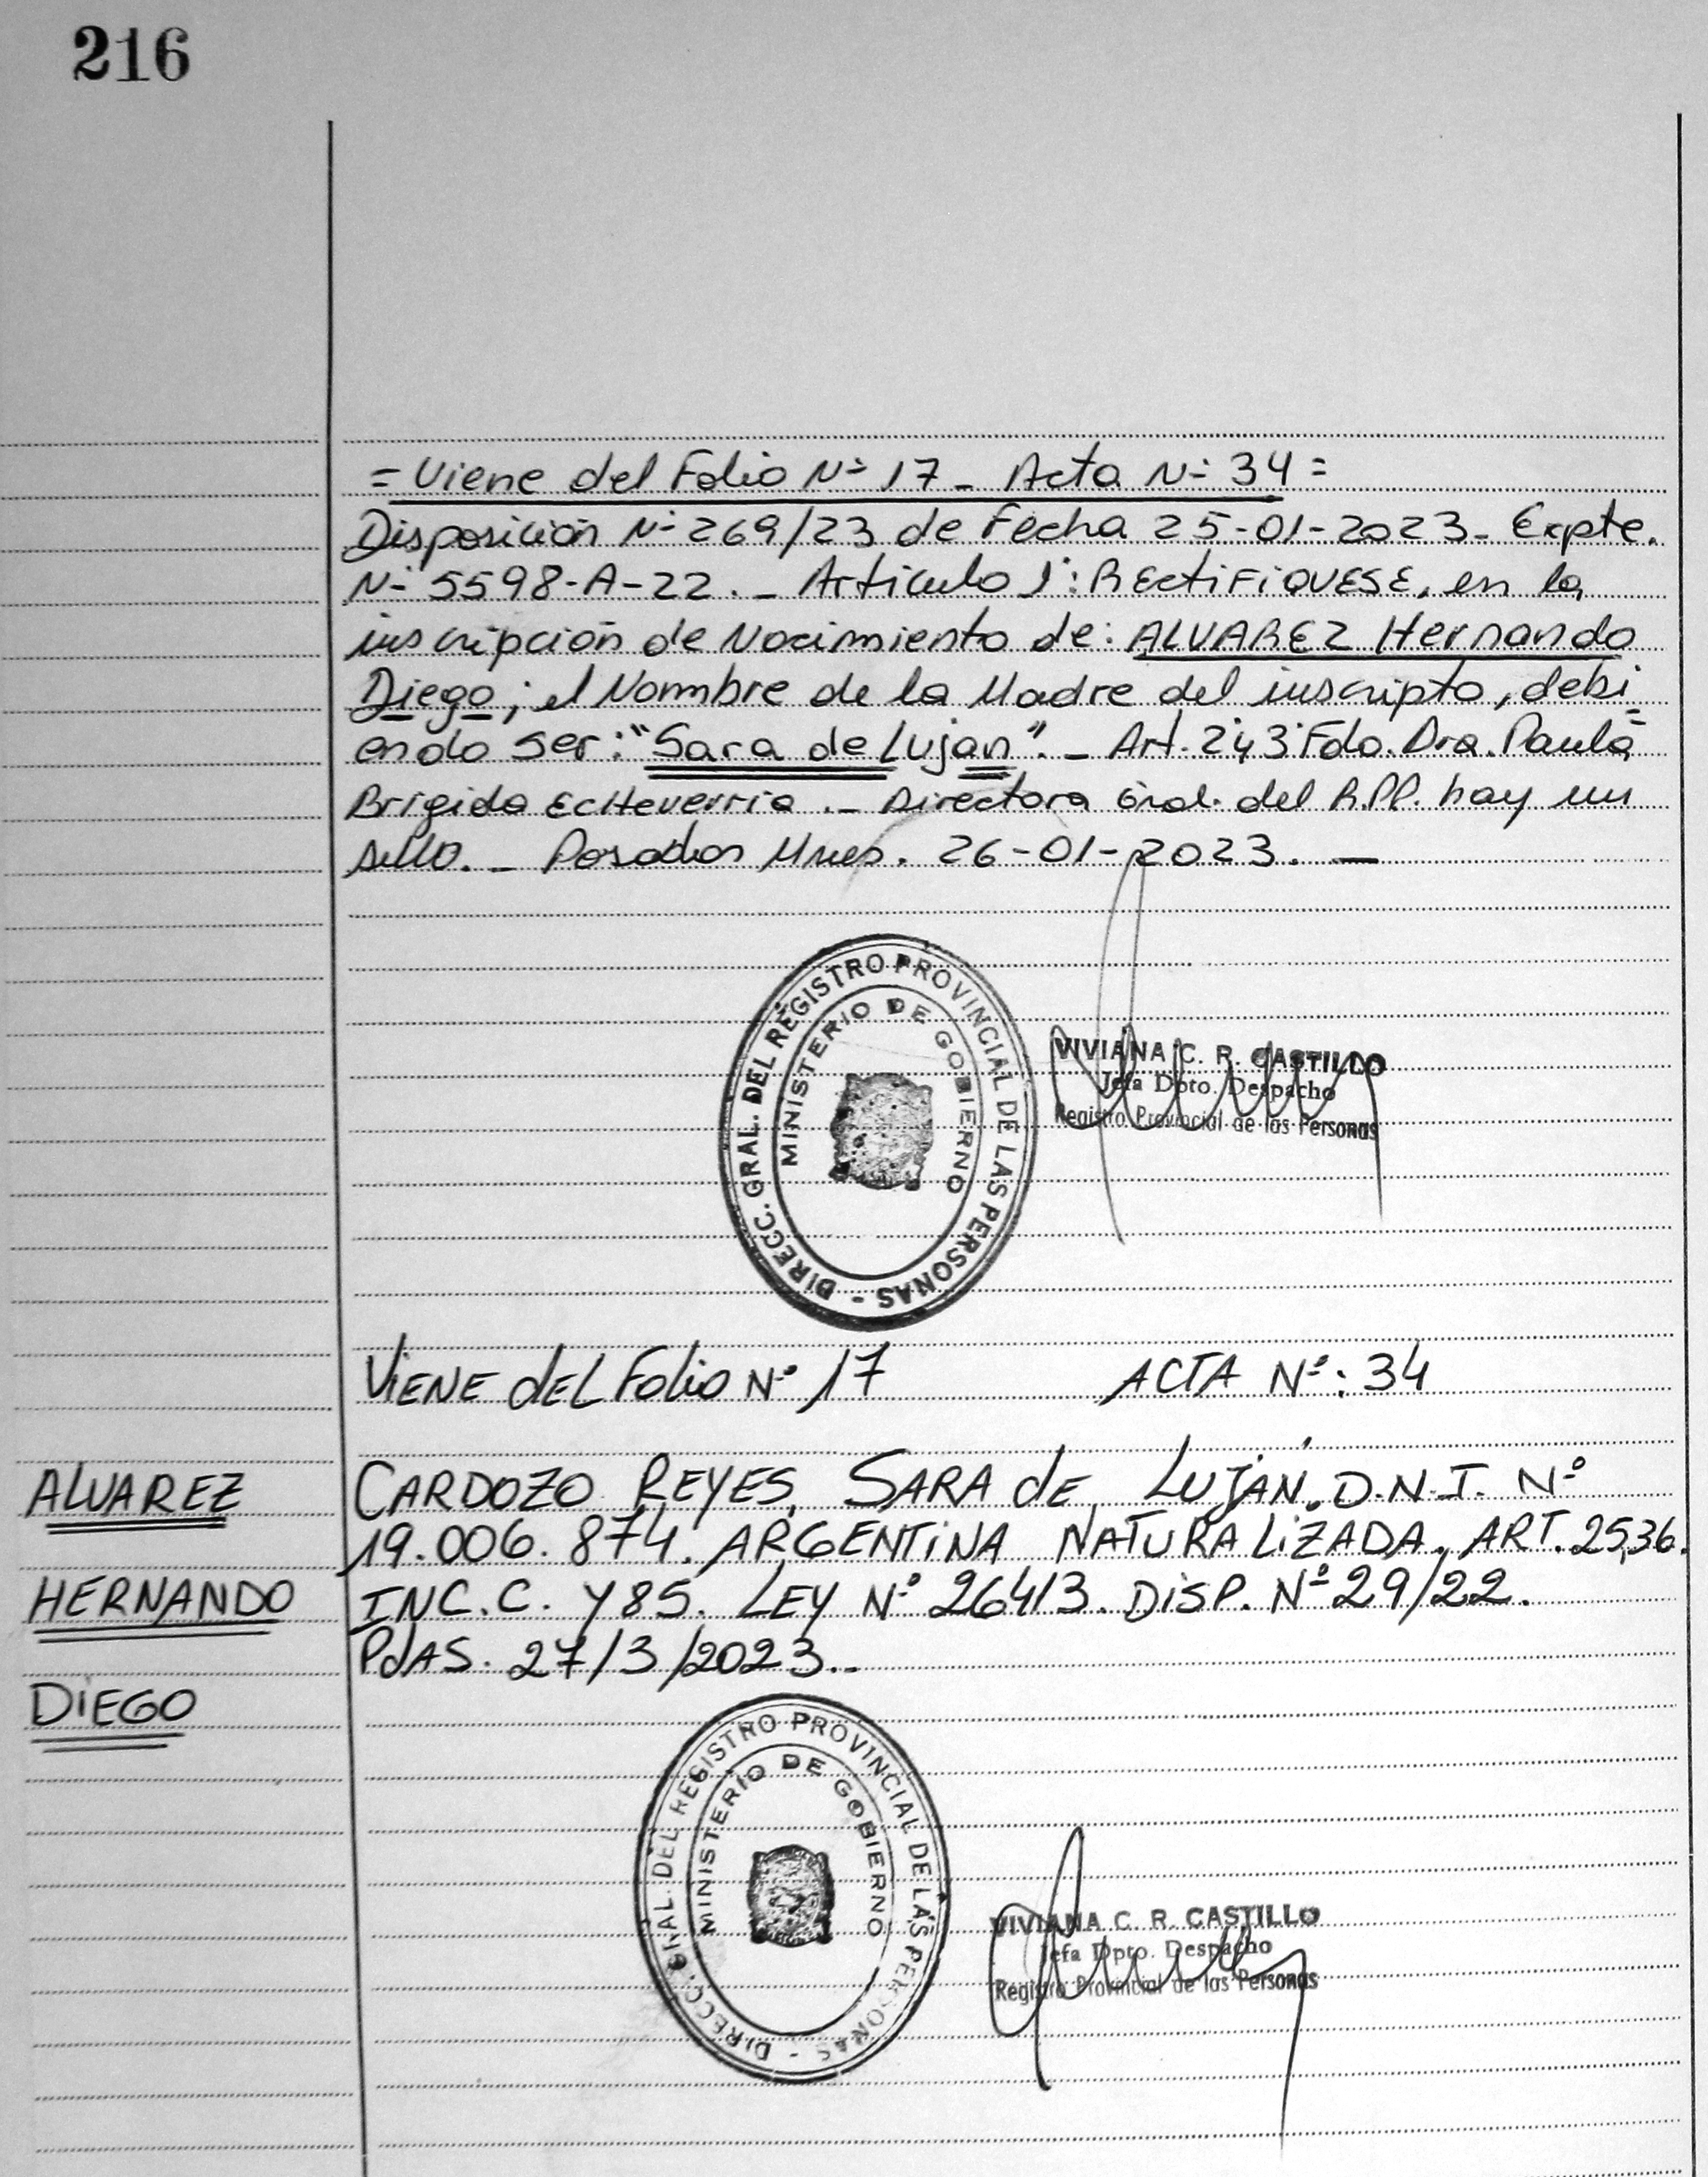 216
= Viene del Folio Nº 17 _ Acta Nº 34 =
Disposición Nº 269/23 de Fecha 25-01-2023_ Expte.
Nº 5598-A-22._ Artículo 1º: RECTIFIQUESE, en la
inscripción de Nacimiento de: ALVAREZ Hernando
Diego; el Nommbre de la Madre del inscripto, debi=
endo ser: "Sara de Lujan"._ Art. 2y3 Fdo. Dra. Paula
Brigida Echeverria._ Directora Gral. del R.P.P. hay un
sello._ Posadas Mnes. 26-01-2023._
DIRECC. GRAL. DEL REGISTRO PROVINCIAL DE LAS PERSONAS -
MINISTERIO DE GOBIERNO
VIVIANA C. R. CASTILLO
Jefa Dpto. Despacho
Registro Provincial de las Personas
VIENE dEL Folio Nº 17 ACTA Nº: 34
ALVAREZ
HERNANDO
DIEGO
CARDOZO REYES, SARA dE LUJÁN. D.N.I. Nº
19.006.874. ARGENTINA NATURALIZADA. ART. 25,36.
INC. C. Y 85. LEY Nº 26413. DISP. Nº 29/22.
PdAS. 27/3/2023..
DIRECC. GRAL. DEL REGISTRO PROVINCIAL DE LAS PERSONAS -
MINISTERIO DE GOBIERNO
VIVIANA C. R. CASTILLO
Jefa Dpto. Despacho
Registro Provincial de las Personas